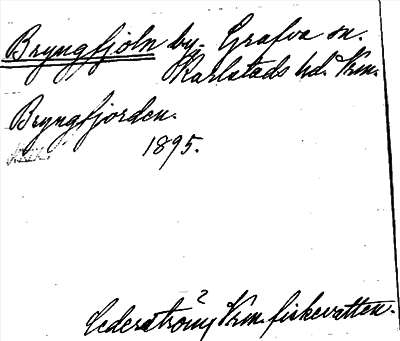 Bryngfjöln by, Grafva sn.
Karlstads hd. Vrm.
Bryngfjorden.
1895.
Cederström, Vrm. fiskevatten.